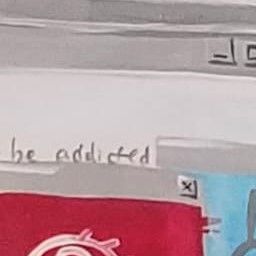 be addicted